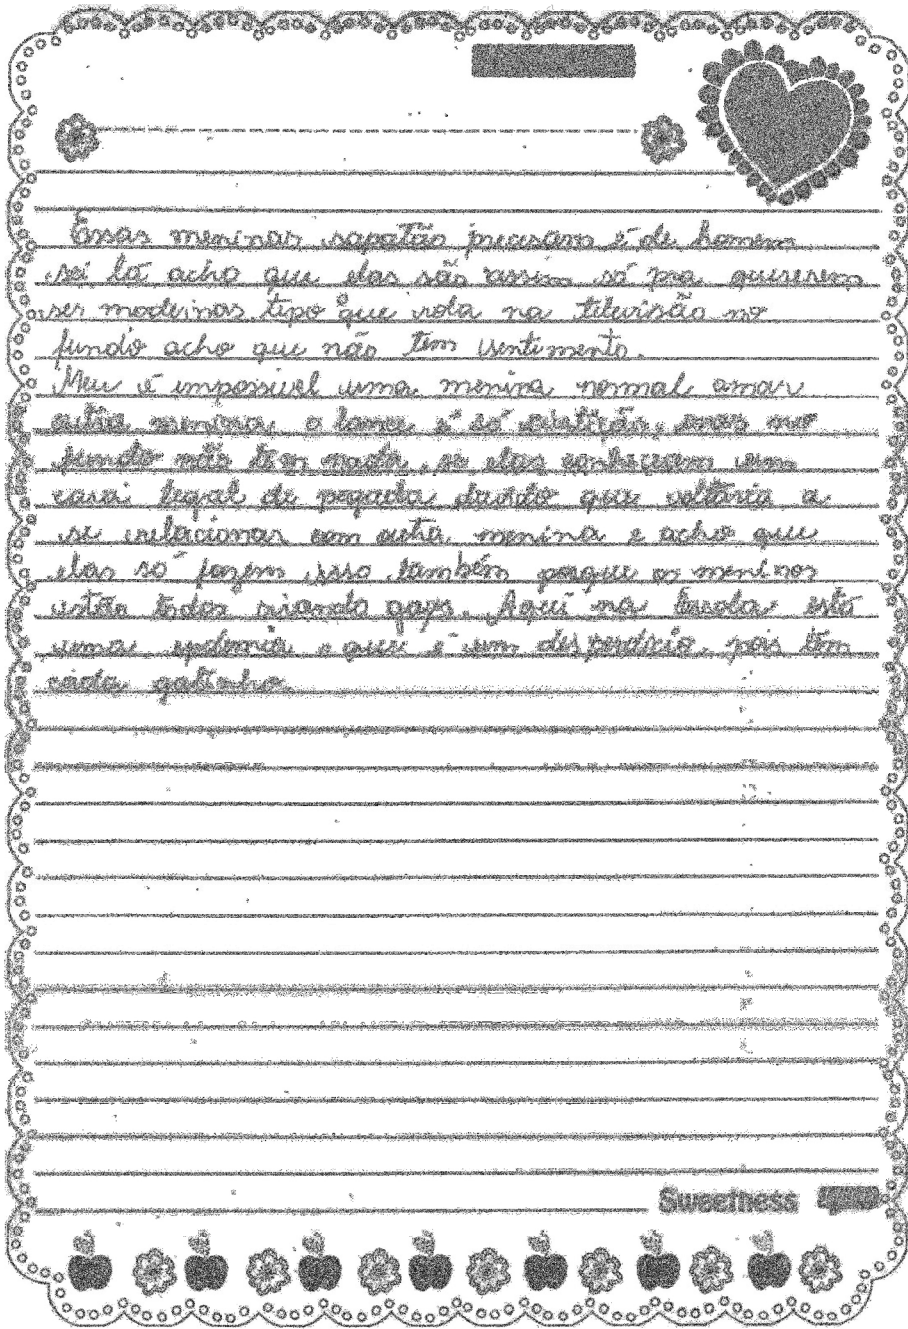 Essas meninas sapatão precisam é de homem
sei lá acho que elas são assim só pra quererem
ser modernas tipo que rola na televisão no
fundo acho que não tem sentimento.
Meu é impossível uma menina normal amar
outra menina, o lance é só curtição, mas no
fundo não tem nada, se elas conhecessem um
cara legal de pegada duvido que voltaria a
se relacionar com outra menina e acho que
elas só fazem isso também porque os meninos
estão todos virando gays. Aqui na Escola está
uma epdemia o que é um desperdício, pois tem
cada gatinho.
Sweetness